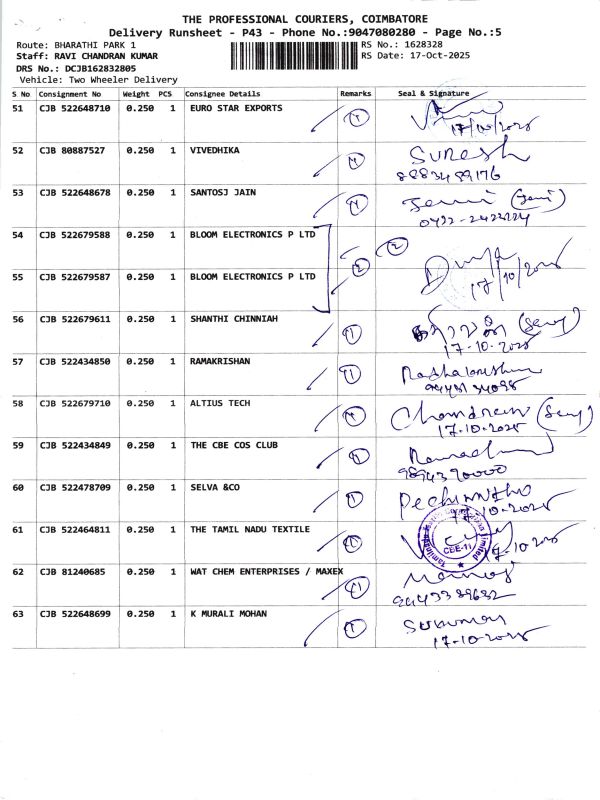 THE PROFESSIONAL COURIERS, COIMBATORE
Delivery Runsheet - P43 - Phone No.:9047080280 - Page No.:5
Route: BHARATHI PARK 1
RS No.: 1628328
Staff: RAVI CHANDRAN KUMAR
RS Date: 17-Oct-2025
DRS No.: DCJB162832805
Vehicle: Two Wheeler Delivery
S No Consignment No Weight PCS Consignee Details Remarks Seal & Signature
51 CJB 522648710 0.250 1 EURO STAR EXPORTS
17/10/2025
52 CJB 80887527 0.250 1 VIVEDHIKA SURESH
8883489176
53 CJB 522648678 0.250 1 SANTOSJ JAIN
0422-2422224
54 CJB 522679588 0.250 1 BLOOM ELECTRONICS P LTD 2
55 CJB 522679587 0.250 1 BLOOM ELECTRONICS P LTD 2
17/10/2025
56 CJB 522679611 0.250 1 SHANTHI CHINNIAH
17-10-2025
57 CJB 522434850 0.250 1 RAMAKRISHAN
58 CJB 522679710 0.250 1 ALTIUS TECH
17-10-2025
59 CJB 522434849 0.250 1 THE CBE COS CLUB
9894390000
60 CJB 522478709 0.250 1 SELVA &CO
17-10-2025
61 CJB 522464811 0.250 1 THE TAMIL NADU TEXTILE
CBE-11
17-10-2025
62 CJB 81240685 0.250 1 WAT CHEM ENTERPRISES / MAXEX Manoj
63 CJB 522648699 0.250 1 K MURALI MOHAN
17-10-2025